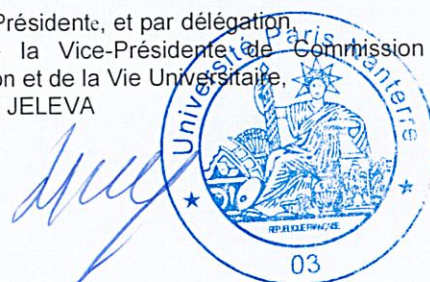 Présidente, et par délégation,
la Vice-Présidente de Commission
on et de la Vie Universitaire,
JELEVA
Université Paris Nanterre
REPUBLIQUE FRANÇAISE
03